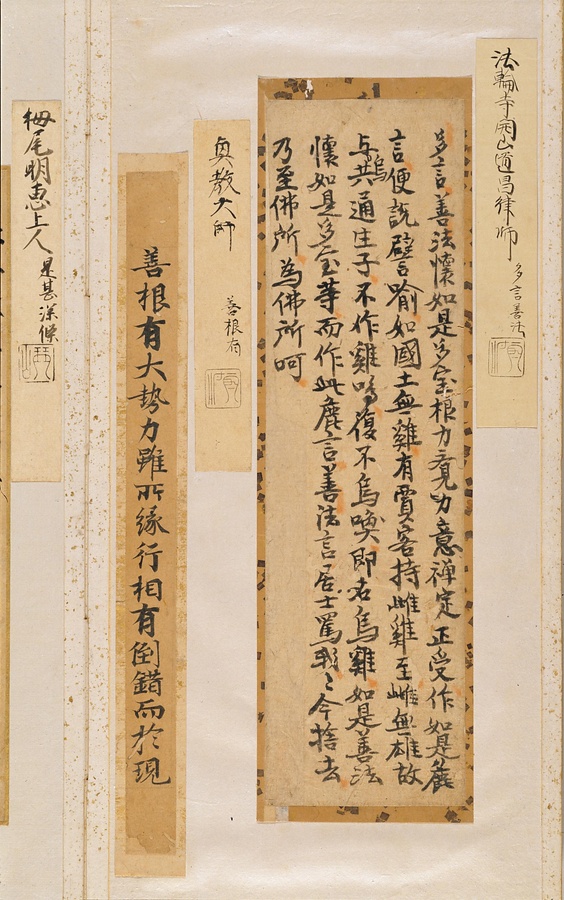 法輪寺開山道昌律師
多言善法
多言善法懐如是多宝根力覚力意禅定正受作如是麁
言便説譬喻如國土無雞有賈客持雌雞至雌無雄故
与烏共通生子不作雞鳴復不烏喚即名烏雞如是善法
懐如是多宝等而作此麁言善法言居士罵我〻今捨去
乃至佛所為佛所呵
真教大師
善根有
善根有大勢力雖所緣行相有倒錯而於現
栂尾明恵上人
是甚深條